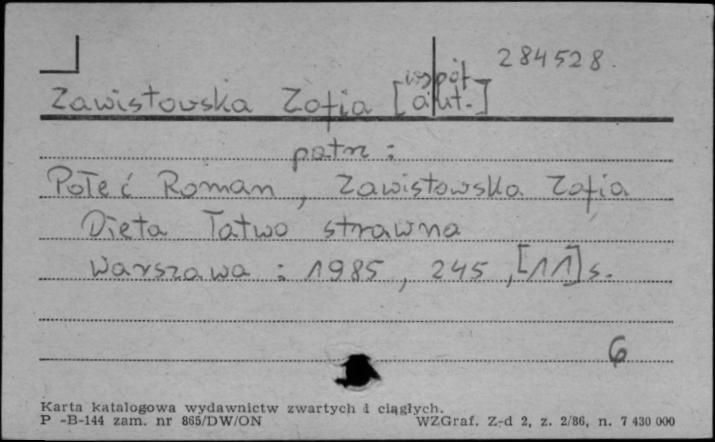 284528.
Zawistowska Zofia [współaut.]
patrz :
Połeć Roman, Zawistowska Zofia
Dieta łatwo strawna
Warszawa : 1985, 245, [11] s.
6
Karta katalogowa wydawnictw zwartych i ciągłych.
P -B-144 zam. nr 865/DW/ON WZGraf. Z-d 2, z. 2/86, n. 7 430 000